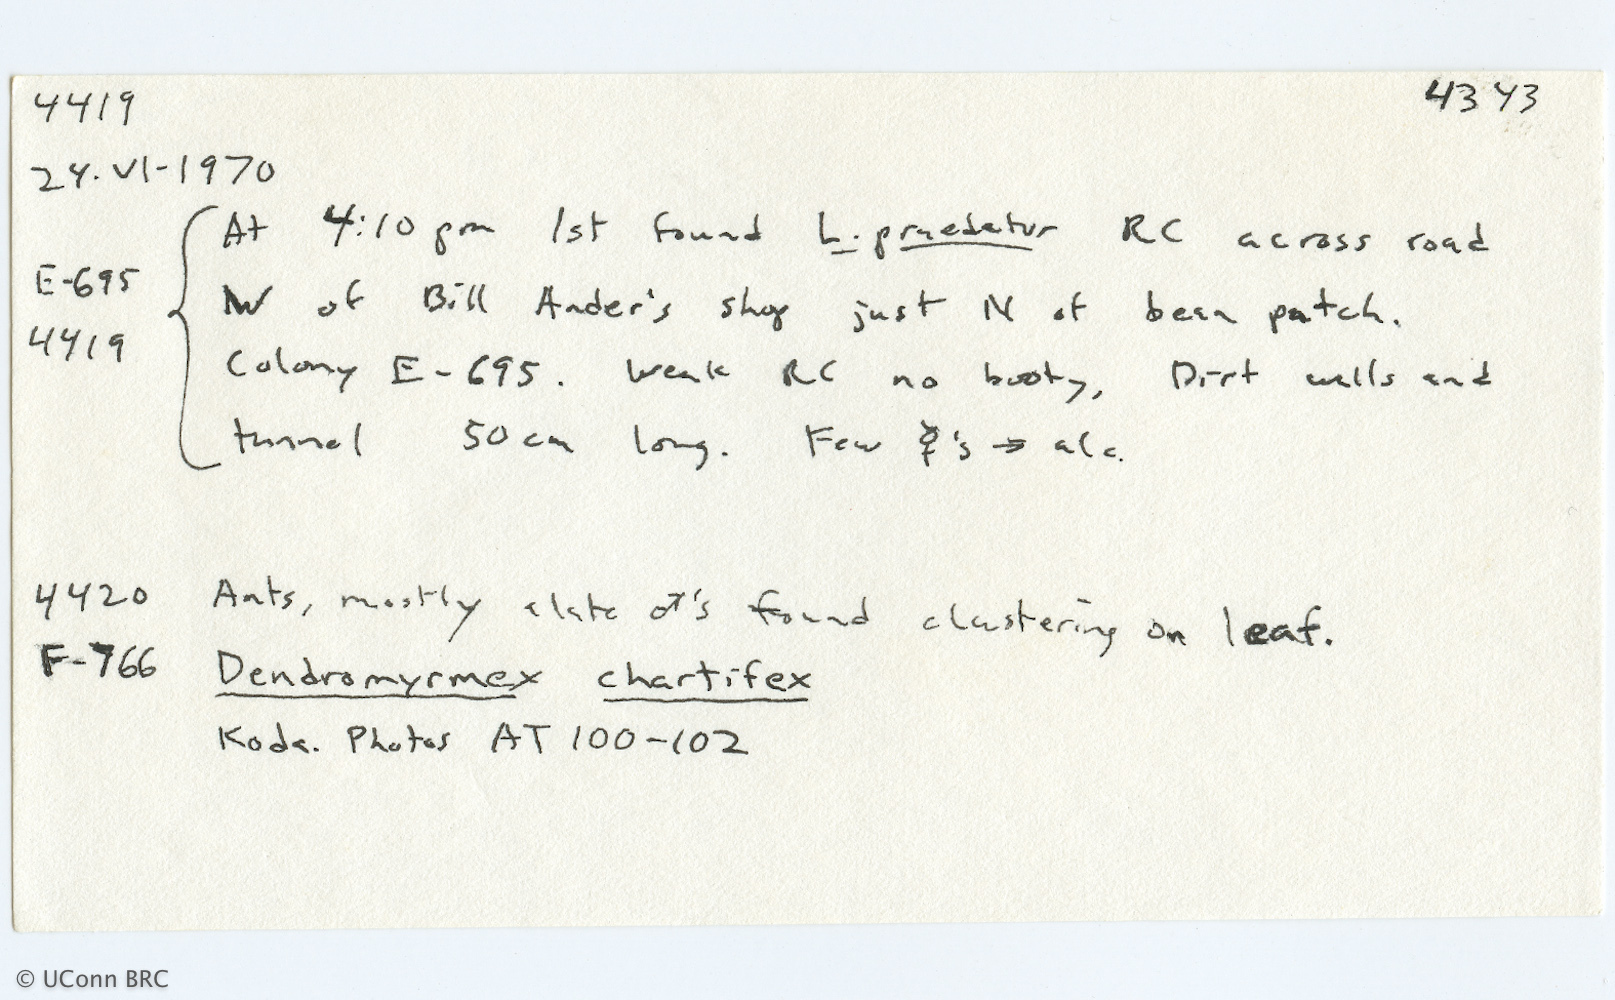 4419 4343
24.VI-1970
At 4:10 pm 1st found L. praedator RC across road
E-695 W of Bill Ander's shop just N of bean patch.
4419 Colony E-695. Weak RC no booty, Dirt walls and
tunnel 50 cm long. Few ☿'s → alc.
4420 Ants, mostly alate ♂'s found clustering on leaf.
F-766 Dendromyrmex chartifex
Koda. Photos AT 100-102
© UConn BRC